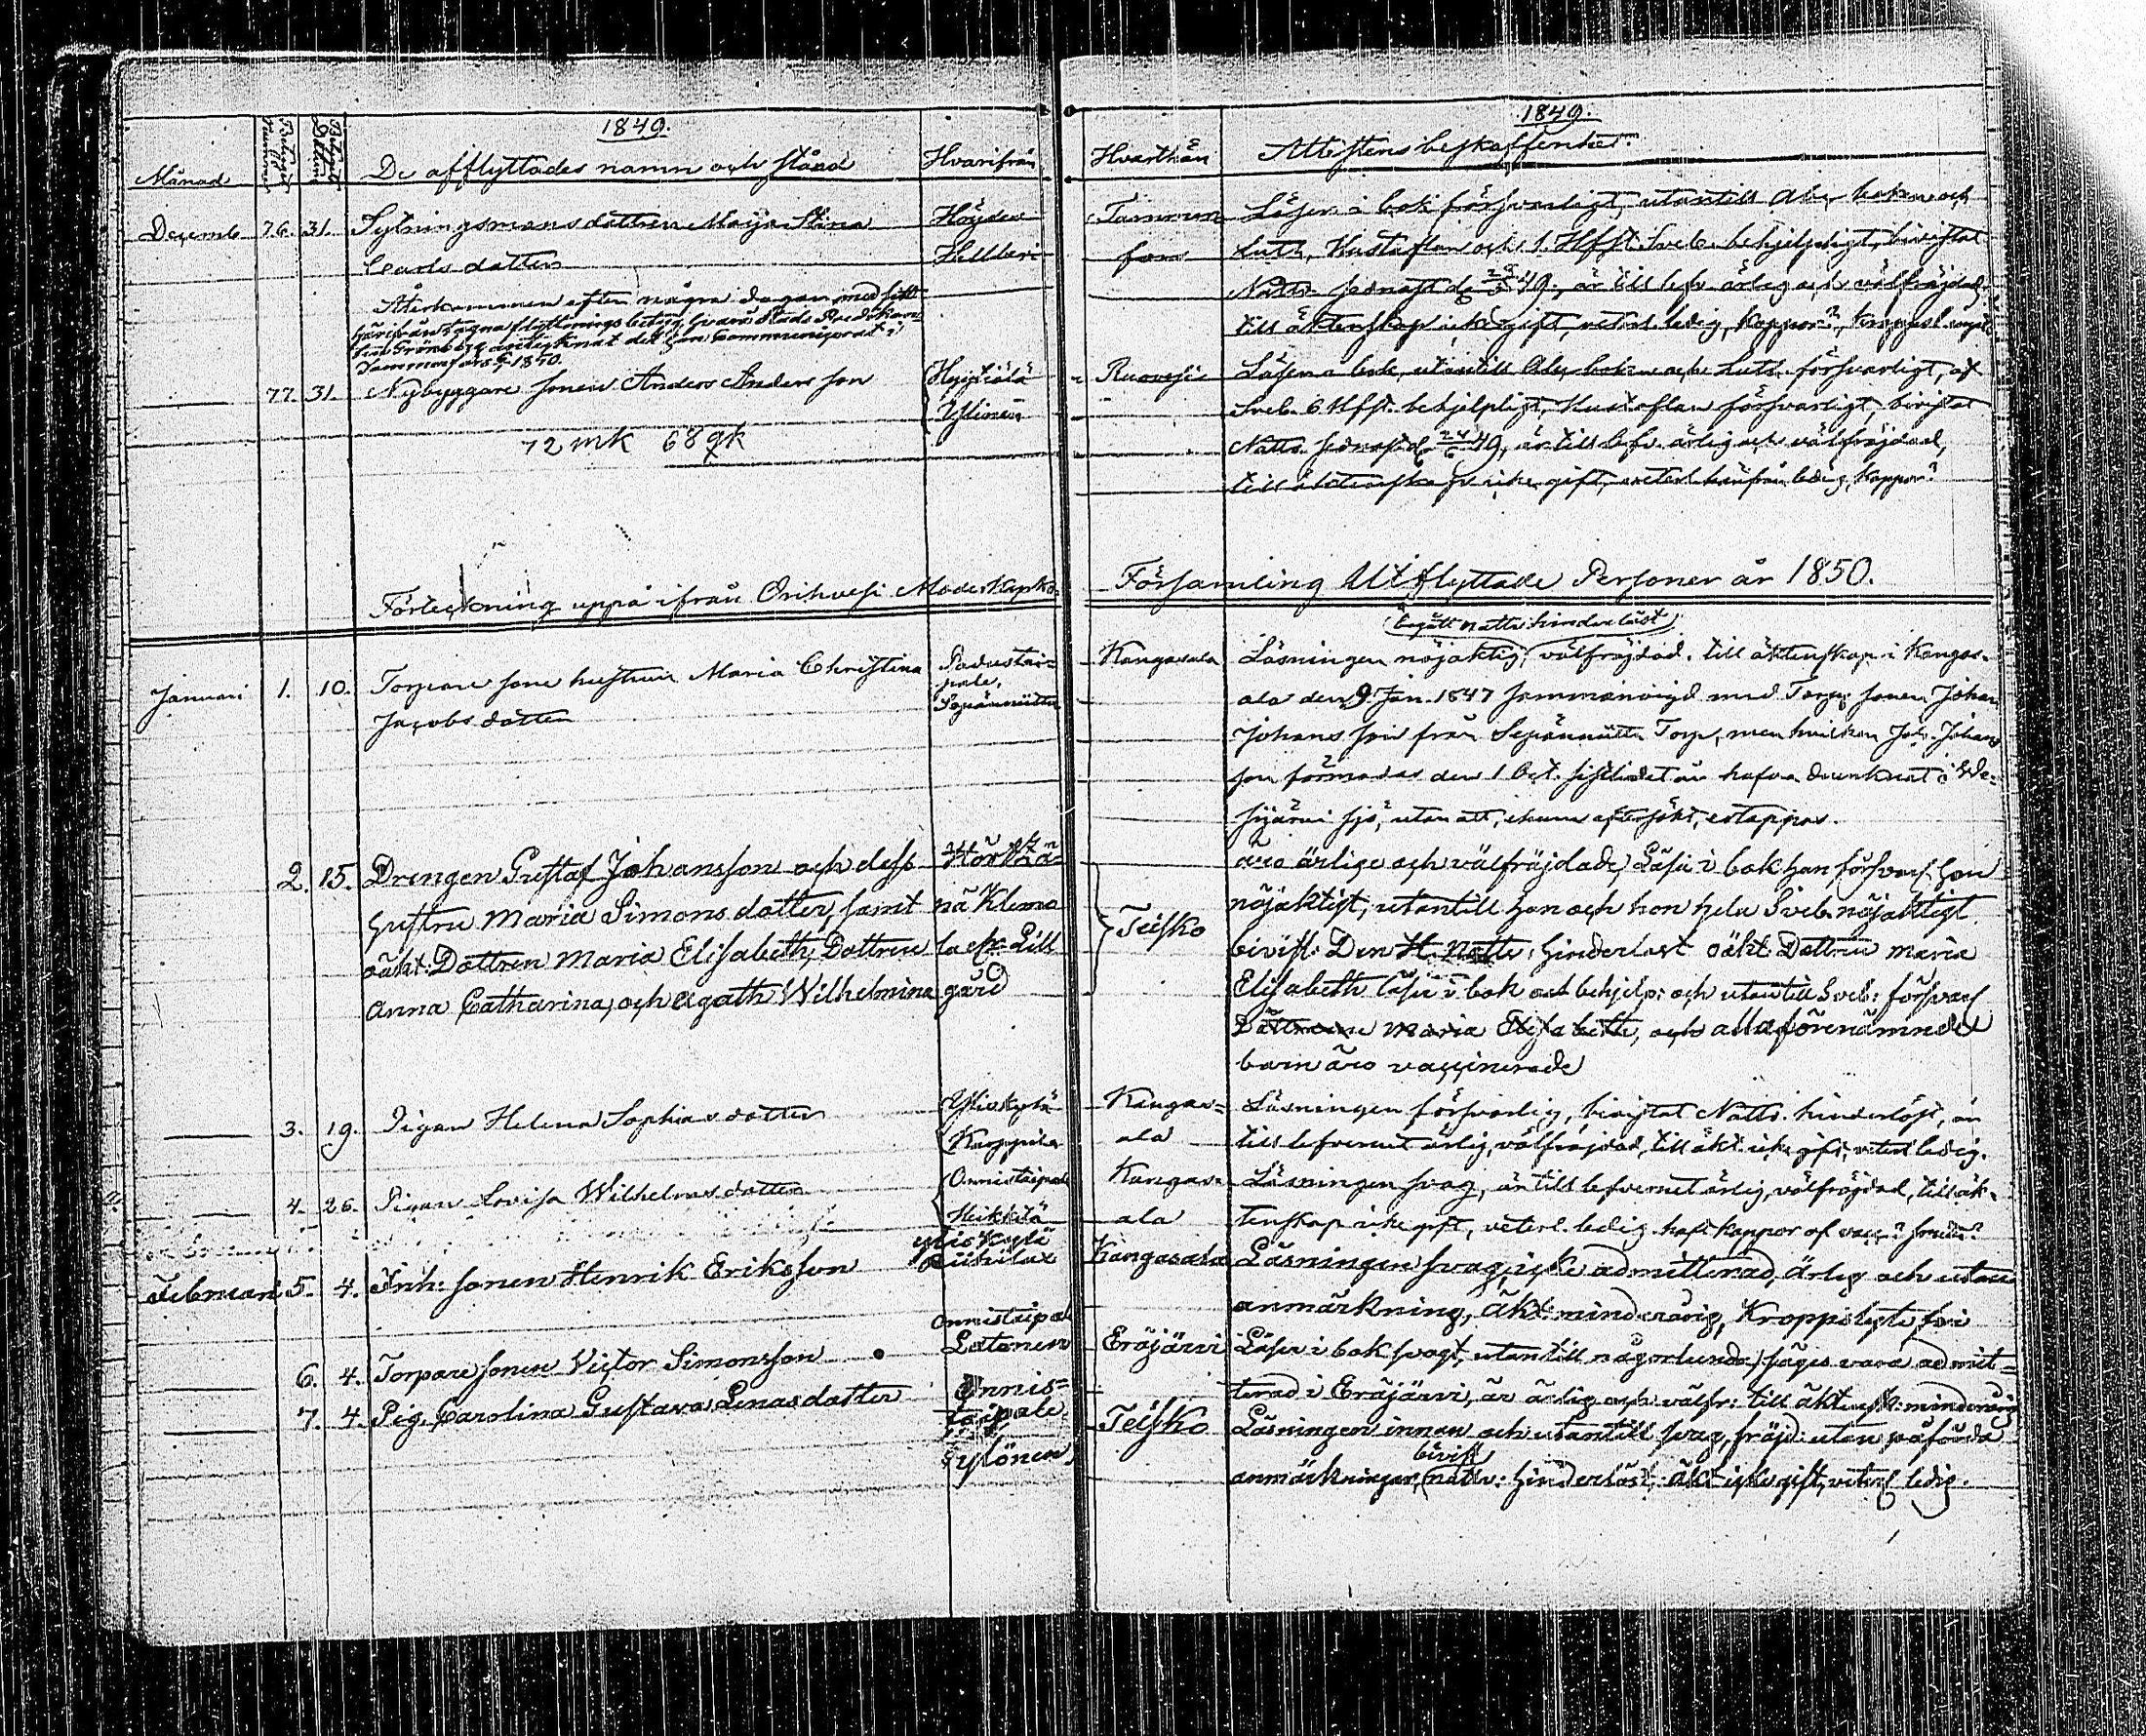 1849.
Månad
Betygets nummer
Betygets Datum
De afflyttades namn och stånd
Hvarifrån
Decemb 76. 31. Sytningsmans dottren Maja Stina
Carls dotter
Höyden
Hellberi
Återkommen efter några dagar med sitt
härifrån tagna flyttnings betyg, hvars
antecknat det han communicerat i
Tammerfors 1850.
77. 31. Nybyggare sonen Anders Andersson
Hyytiälä
Ylinen
72 mk 68 gk
Förteckning uppå ifrån Orihvesi Moderkapko
Januari 1. 10. Torpare sone hustrun Maria Christina
Jacobs dotter
Padustai-
pale,
Sepänniittu
2. 15. Drengen Gustaf Johansson och dess
hustru Maria Simons dotter, samt
oäkt: Dottren Maria Elisabeth, Dottren
Anna Catharina, och Agath Wilhelmina
nä Klemo
la Lill
gård
3. 19. Pigan Helena Sophias dotter
Yliskylä
Karppila
4. 26. Pigan Lovisa Wilhelms dotter
Onnistaipal
Heikkilä
Februari 5. 4. Inh: sonen Henrik Eriksson
Yliskylä
6. 4. Torpare sonen Victor Simonsson
Onnistaipal
Latonen
7. 4. Pig. Carolina Gustava Lenasdotter
Onnis-
taipale
Sylönen
1849.
Hvarthän
Attestens beskaffenhet.
Tammer
fors
Läser i bok försvarligt, utantill Abc boken och
Luth. Hustaflan och 1. Hfst. Sveb. behjelpligt, bevistat
Nattv. sednast d. 49, är till lefv. ärlig och välfräjdad,
till äktenskap icke gift, veterl. ledig, Koppor?, kroppsl.
Ruovesi
Läser i bok, utantill Abc boken och Luth. försvarligt, af
Sveb. 6 Hfst. behjelpligt, Hustaflan försvarligt, bevistat
Nattv. sednast d. 24/6 49, är till lefv. ärlig och välfräjdad,
till äktenskap icke gift, veterl. härifrån ledig, Koppor?
Församling Utflyttade Personer år 1850.
begått nattv. hinderlöst
Kangasala
Läsningen nöjaktig, välfräjdad. till äktenskap i Kangas-
ala den 9 Jan. 1847 sammanvigd med Torp. sonen Johan
Johansson från Sepänniittu Torp, men hvilken Joh. Johans
son förmodas den 1 Oct. sistlidet år hafva drunknat i We-
sijärvi sjö, utan att, ehuru eftersökt, ertappas.
Teisko
äro ärlige och välfräjdade, Läser i bok han försvarl. hon
nöjaktigt, utantill han och hon hela Sveb. nöjaktigt
bivist: Den H. Nattv: hinderlöst oäkt. Dottren Maria
Elisabeth läser i bok och behjelp: och utantill Sveb: försvarl
Dottrene Maria Elisabeth, och alla förenämnde
barn äro vaccinerade
Kangas-
ala
Läsningen försvarlig, bevistat Nattv. hinderlöst, är
till lefvernet ärlig, välfräjdad, till äkt. icke gift, veterl ledig.
Kangas-
ala
Läsningen svag, är till lefvernet ärlig, välfräjdad, till äk-
tenskap icke gift, veterl. ledig. haft koppor
Kangasala
Läsningen svag, icke admitterad, Ärlig och utan
anmärkning, Äkt: minderårig, Kroppslyte fri
Eräjärvi
Läser i bok svagt, utantill någorlunda, säges vara admit-
terad i Eräjärvi, är ärlig och välfr: till äktensk: minderårig
Teisko
Läsningen innan och utantill svag, fräjd: utan påförda
bivist
anmärkningar, nattv: hinderlöst, äkt icke gift, veterl ledig.